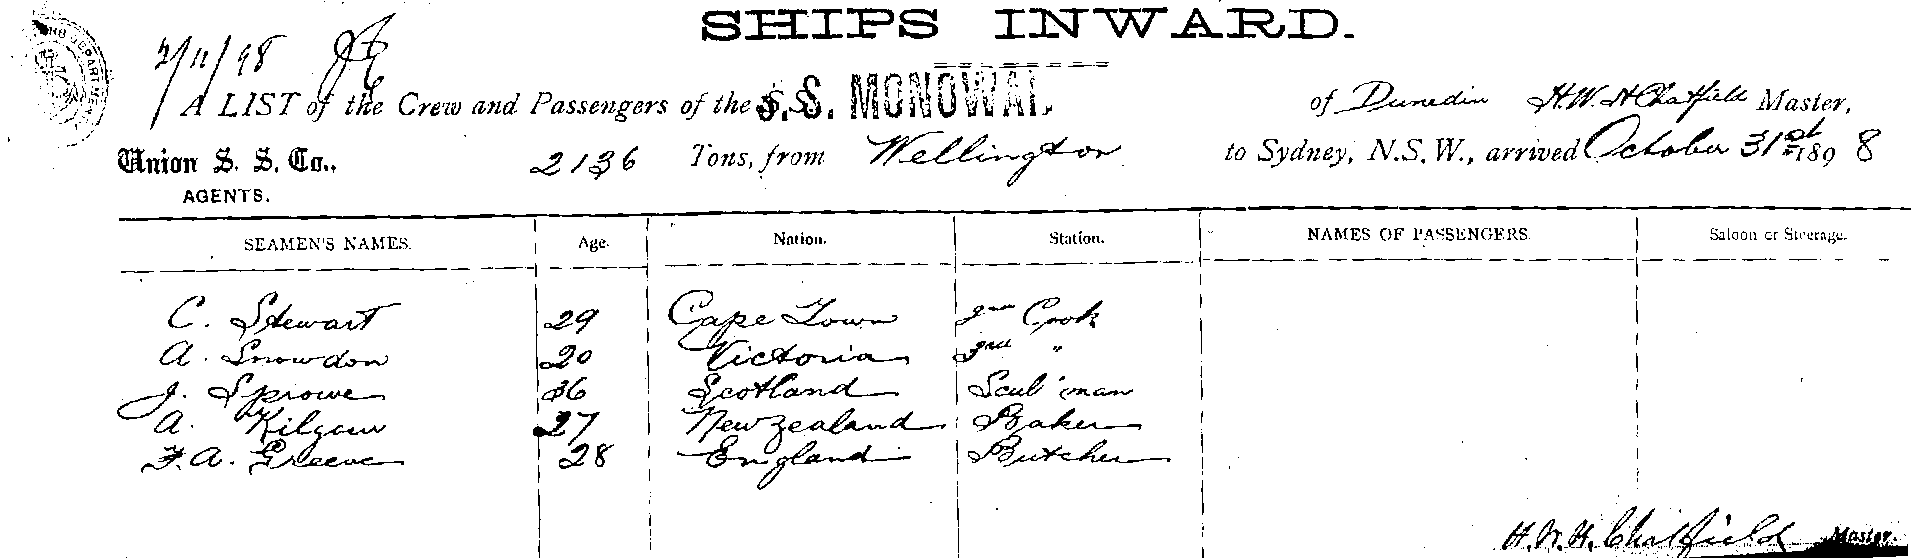 SHIPS INWARD.
2/11/98
A LIST of the Crew and Passengers of the S.S. MONOWAI. of Dunedin H.W.H Chatfield Master,
Union S. S. Co., 2136 Tons, from Wellington to Sydney, N.S.W., arrived October 31st 1898
AGENTS.
SEAMEN'S NAMES. Age. Nation. Station. NAMES OF PASSENGERS. Saloon or Steerage.
C. Stewart 29 Cape Town 2nd Cook
A. Snowdon 20 Victoria 3rd "
J. Sprowe 36 Scotland Scul'man
A. Kilgour 27 New Zealand Baker
F. A. Greeve 28 England Butcher
H. W. H. Chatfield Master.